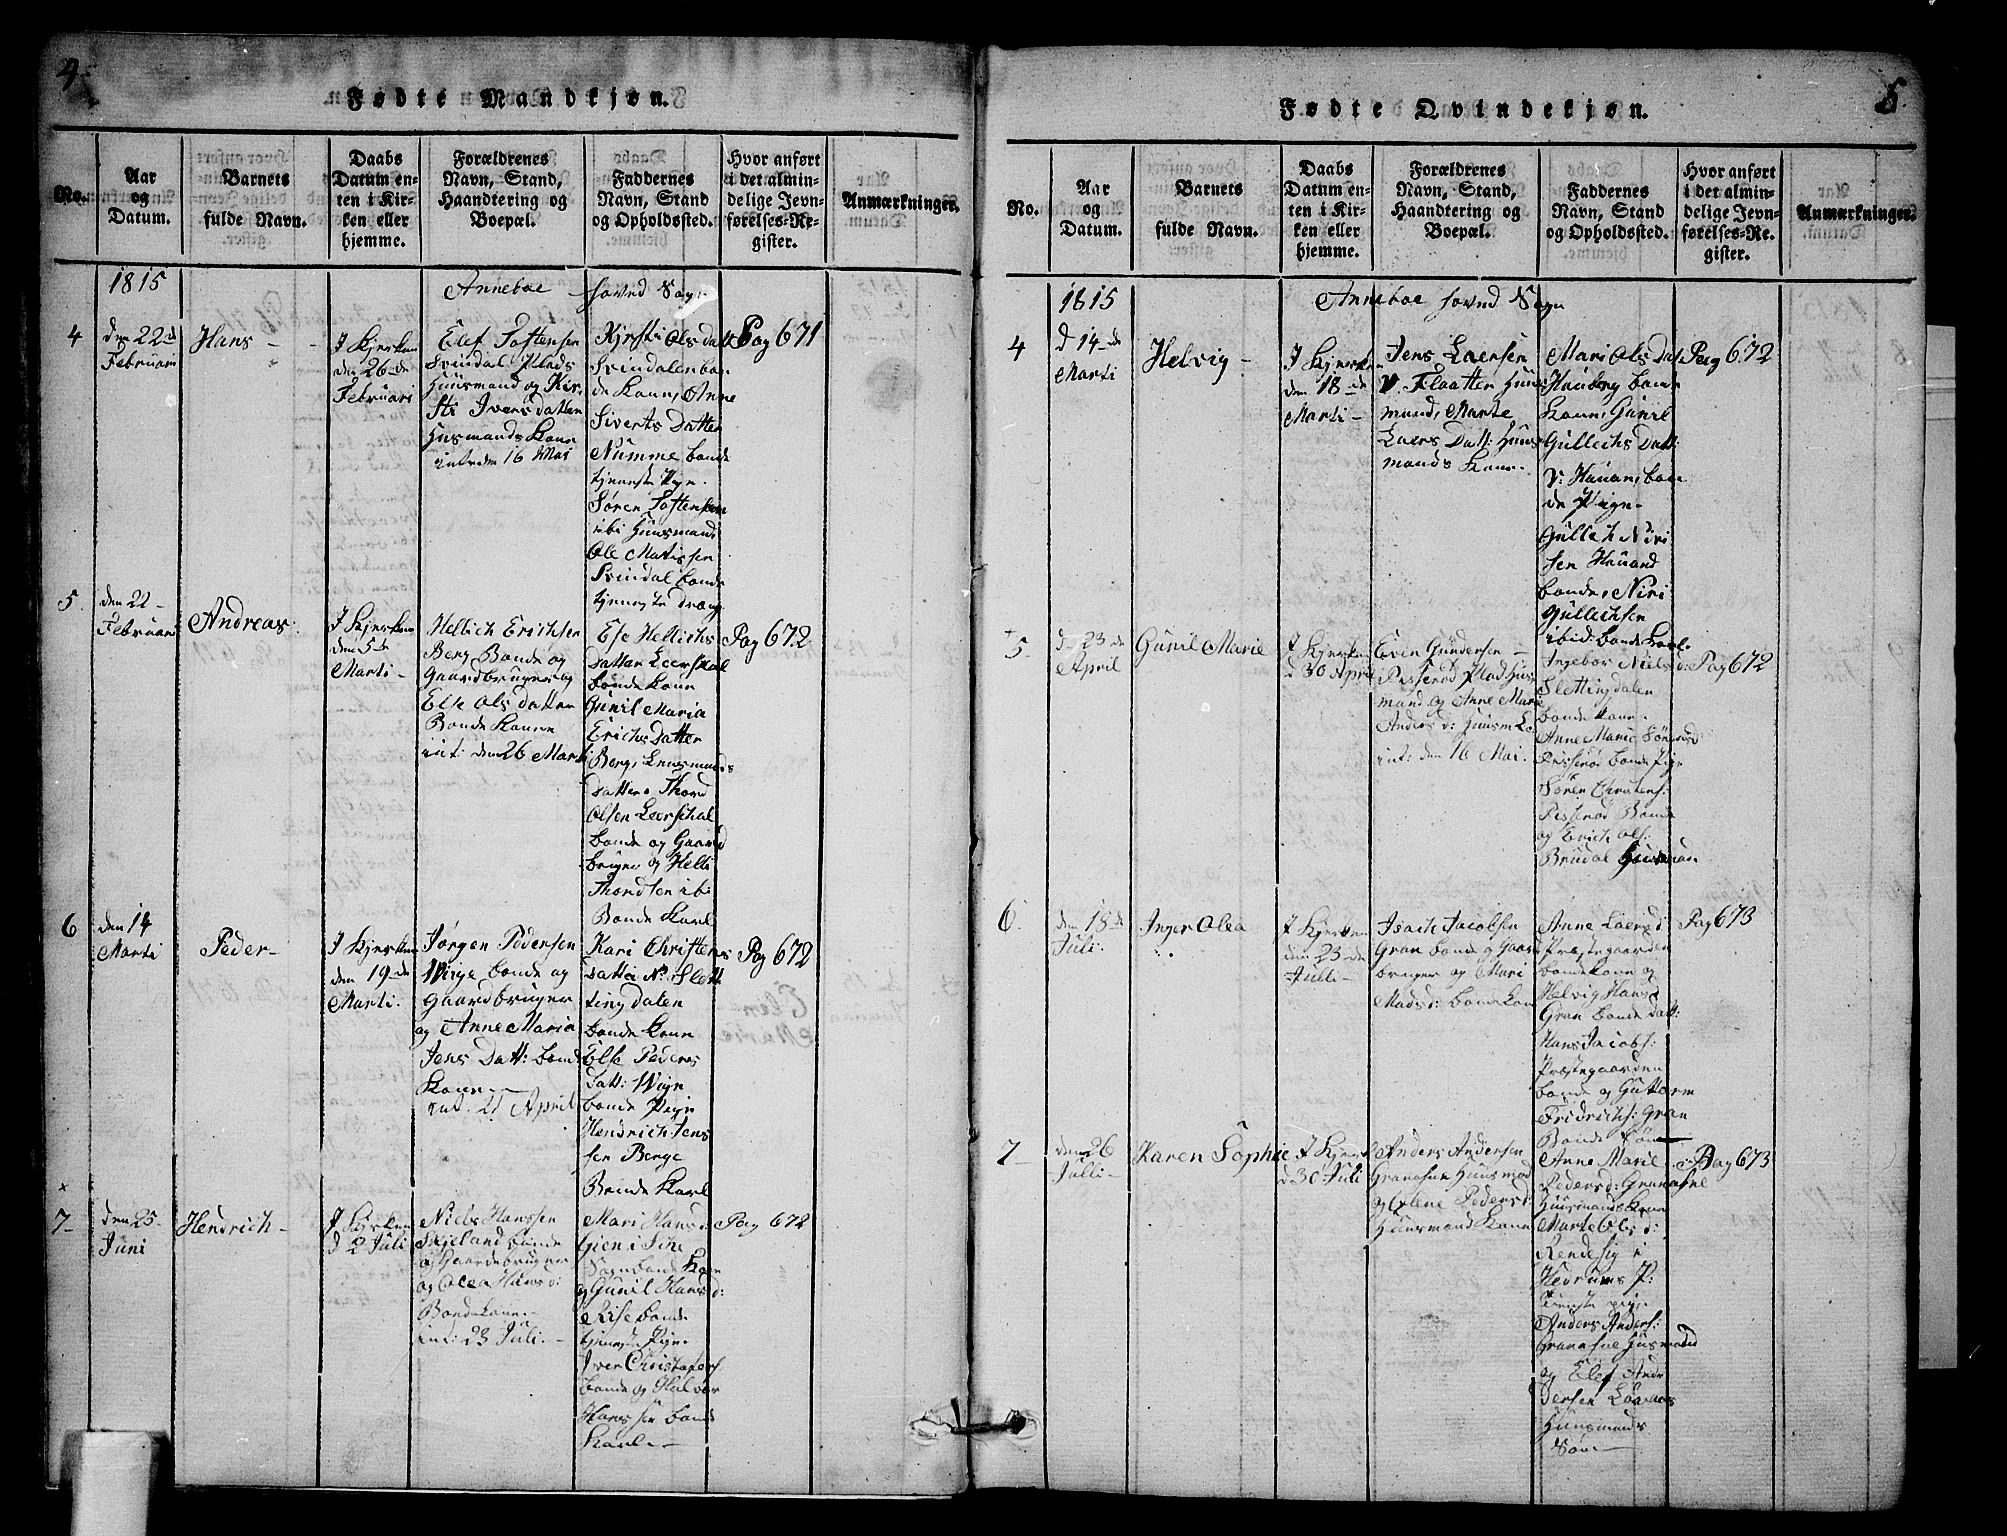 4
Fødte Mandkjøn.
No.
Aar
og
Datum.
Barnets
fulde Navn.
Daabs
Datum en-
ten i Kir-
ken eller
hjemme.
Forældrenes
Navn, Stand,
Haandtering og
Boepæl.
Faddernes
Navn, Stand
og Opholdssted.
Hvor anført
i det almin-
delige Jevn-
førelses-Re-
gister.
Anmærkninger.
1815
Anneboe hovnd Sogn
4
den 22de
Februari
Hans
I Kjerken
den 26de
Februari
Elef Toftensen
Svindal Plads
Huusmand og Kir-
sti Ivers datter
Husmands Kone
int: den 16 Mai
Kjrsti Ols datt
Svindalen bon
de Kone, Anne
Siverts Datter
Numme bonde
tjeneste Pige
Søren Toftensen
ibi Huusmand
Ole Matissen
Svindal bonde
tjeneste dreng
Pag 671
5.
den 22
Februari
Andreas
I Kjerken
den 5te
Marti
Hellich Erichsen
Berg Bonde og
Gaardbruger og
Else Ols datter
Bonde Konen
int: den 26 Marti
Else Hellichs
datter Leerskal
bonde Kone
Gunil Maria
Erichs Datter
Berg, Lensmands
datter Thord
Olsen Leerschal
bonde og Gaard
bruger og Helli
Thordsen ib:
Bonde Karl
Pag 672
6
den 14
Marti
Peder
I Kjerken
den 19de
Marti.
Jørgen Pedersen
Wiige bonde og
Gaardbruger
og Anne Maria
Jens Datt: bonde
Kone
int. 21 April
Kari Christens
datter N: Slet
tingdalen
bonde Kone
Else Peders
datt: Wige
bonde Pige
Hendrich Jens
sen Berge
Bonde Karl
Pag 672
7
den 25
Juni
Hendrich
I Kjerken
d 2 Juli
Niels Hanssen
Skjeland bonde
og Gaardebruger
og Olea Hans d:
Bondekone
int: 23 Juli.
Mari Hans d:
Gien i
Sogn bonde Kone
og Gunil Hans d:
Riise bonde
tjeneste Pige
Iver Christophers:
bonde og Halvor
Hanssen bonde
Karl
Pag 672
5.
Fødte Qvindekjøn.
No.
Aar
og
Datum.
Barnets
fulde Navn.
Daabs
Datum en-
ten i Kir-
ken eller
hjemme.
Forældrenes
Navn, Stand,
Haandtering og
Boepæl.
Faddernes
Navn, Stand
og Opholdssted.
Hvor anført
i det almin-
delige Jevn-
førelses-Re-
gister.
Anmærkninger.
1815
Anneboe hovnd Sogn
4
d 14de
Marti
Helvig
I Kjerken
den 18de
Marti
Jens Laersen
V. Flaatten Huus
mand, Marte
Laers Datt: Huus
mands Kone
Mari Ols dat
Hauberg bonde
Kone, Gunil
Gullichs Datt:
V: Hauan, bon
de Pige
Gullich Niri
sen Hauand
bonde, Niri
Gullichsen
ibid: bonde Karl
Pag 672
5.
d. 23de
April
Gunil Marie
I Kjerken
d 30 April
Even Gundersen
Pisserød Plads Huus
mand og Anne Marie
Anders d: Huusm Ko
int: den 16 Mai.
Ingebor Niels d:
Slettingdalen
bonde Kone
Anne Marie Sørensd
Pisserød bonde Pige
Søren Christens:
Pisserød Bonde
og Erich Ols:
Brudal Huusmand
Pag 672
6.
den 18de
Juli.
Inger Olea
I Kjerken
den 23de
Julli
Isach Jacobsen
Gran bonde og Gaard
bruger og Mari
Mads d: bonde Kone
Anne Laers d
Præstegaarden
bonde Kone og
Helvig Hans d
Gran bonde datt:
Hans Jacobs:
Præstegaarden
bonde og Guttorm
Fridrichs: Gran
Bonde Søn
Pag 673
7
den 26
Julli
Karen Sophie
I Kjerk
d 30 Juli
Anders Andersen
Granasne Huusmand
og Helene Peders d:
Huusmand Kone
Anne Marie
Peders d: Granasne
Huusmands Kone
Marte Ols d:
Rendesig i
Hedrums P:
tieneste pige
Anders Anders:
Granasne Husmand
og Elef Ande
dersen Lønnes
Huusmands
Søn
Pag 673